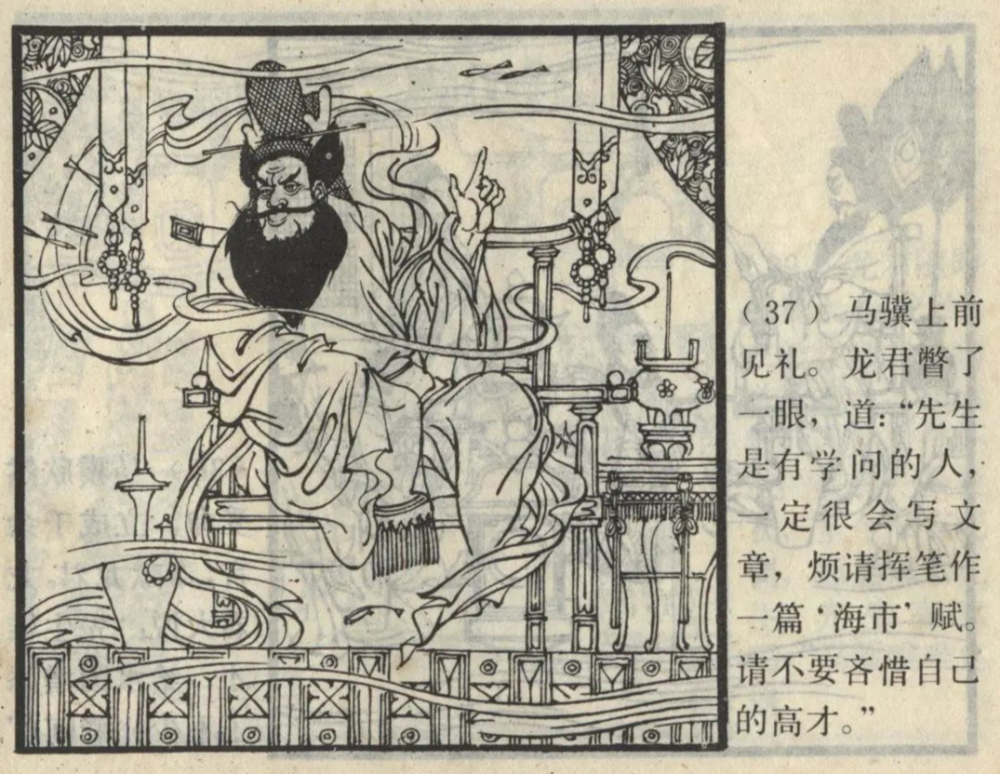 （37） 马骥上前
见礼。龙君瞥了
一眼，道：“先生
是有学问的人，
一定很会写文
章，烦请挥笔作
一篇‘海市’赋。
请不要吝惜自己
的高才。”